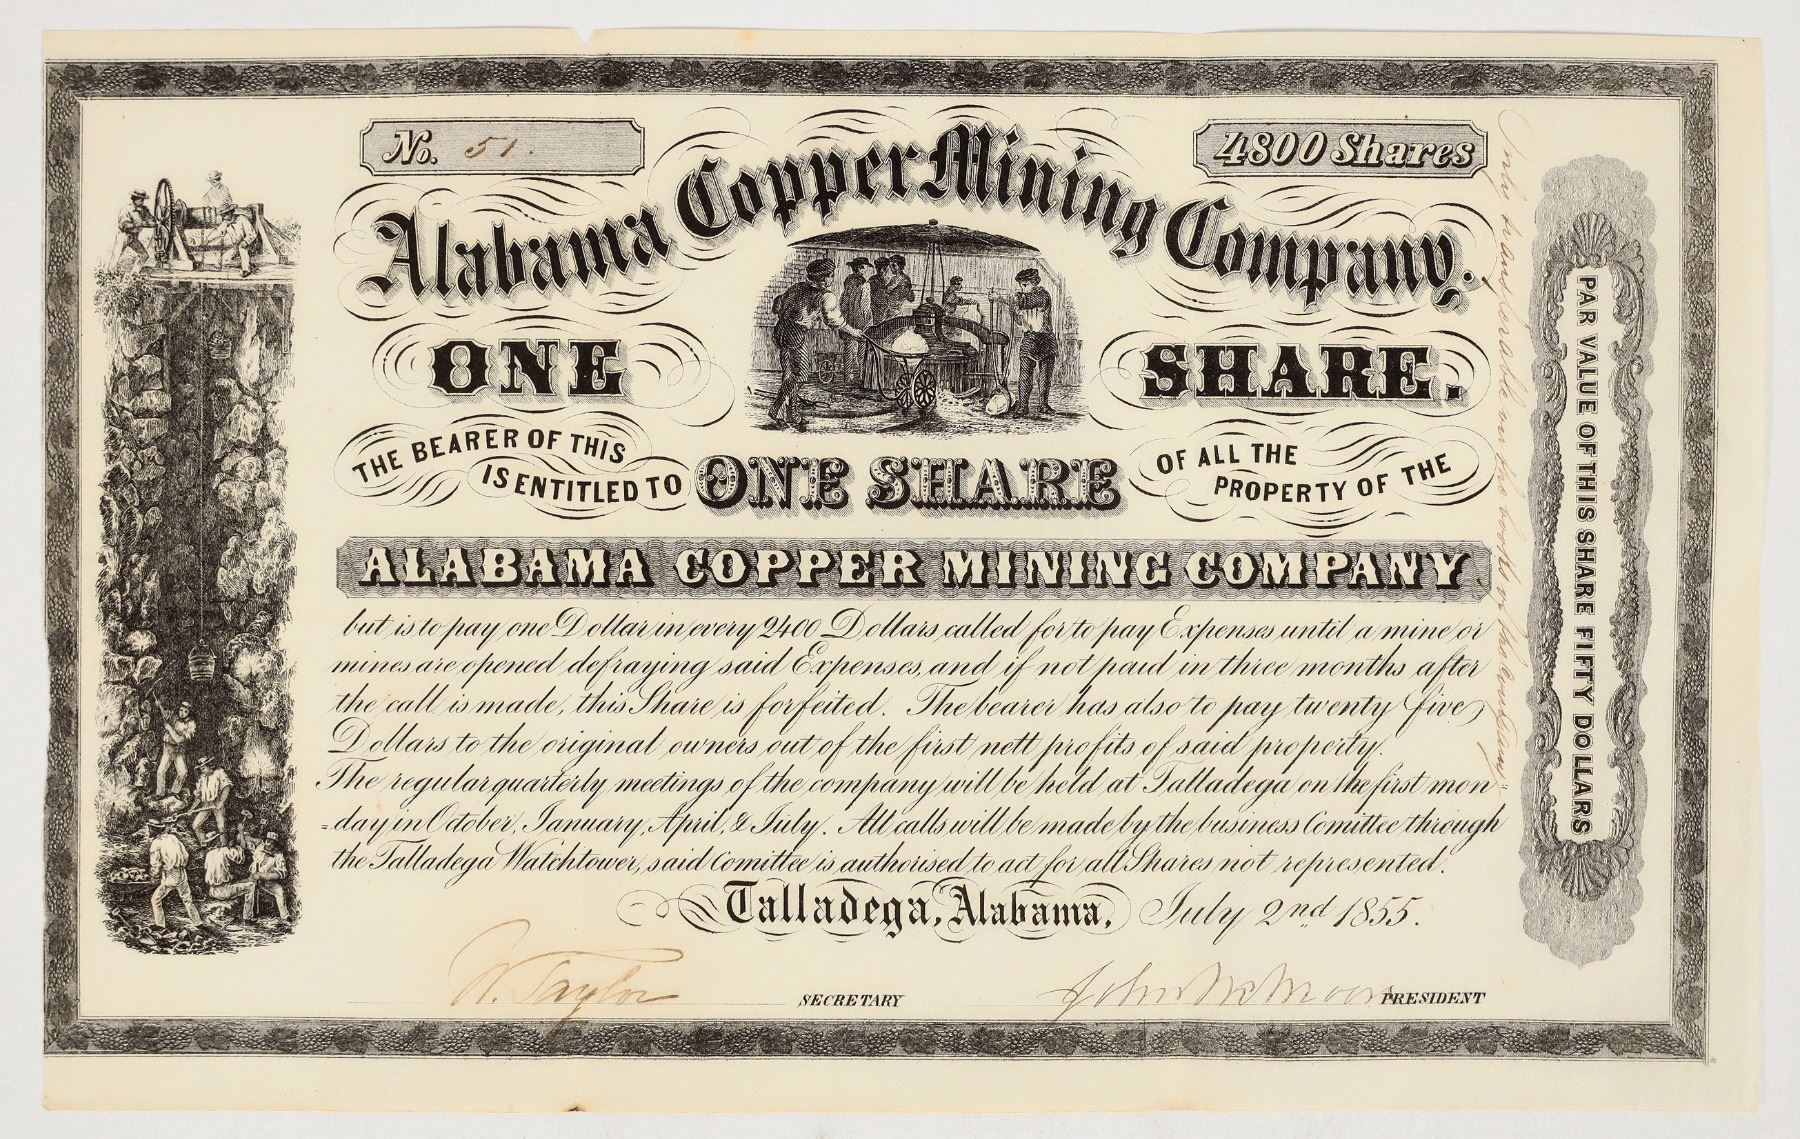 No. 51.
4800 Shares
Alabama Copper Mining Company.
ONE SHARE.
THE BEARER OF THIS
IS ENTITLED TO ONE SHARE OF ALL THE
PROPERTY OF THE
ALABAMA COPPER MINING COMPANY
but is to pay one Dollar in every 2400 Dollars called for to pay Expenses until a mine or
mines are opened defraying said Expenses, and if not paid in three months after
the call is made, this Share is forfeited. The bearer has also to pay twenty five
Dollars to the original owners out of the first nett profits of said property.
The regular quarterly meetings of the company will be held at Talladega on the first mon-
=day in October, January, April, & July. All calls will be made by the business Comittee through
the Talladega Watchtower, said Comittee is authorised to act for all Shares not represented.
Talladega, Alabama. July 2nd 1855.
W. Taylor SECRETARY
John McMoore PRESIDENT
Only transferable on the books of the Company
PAR VALUE OF THIS SHARE FIFTY DOLLARS